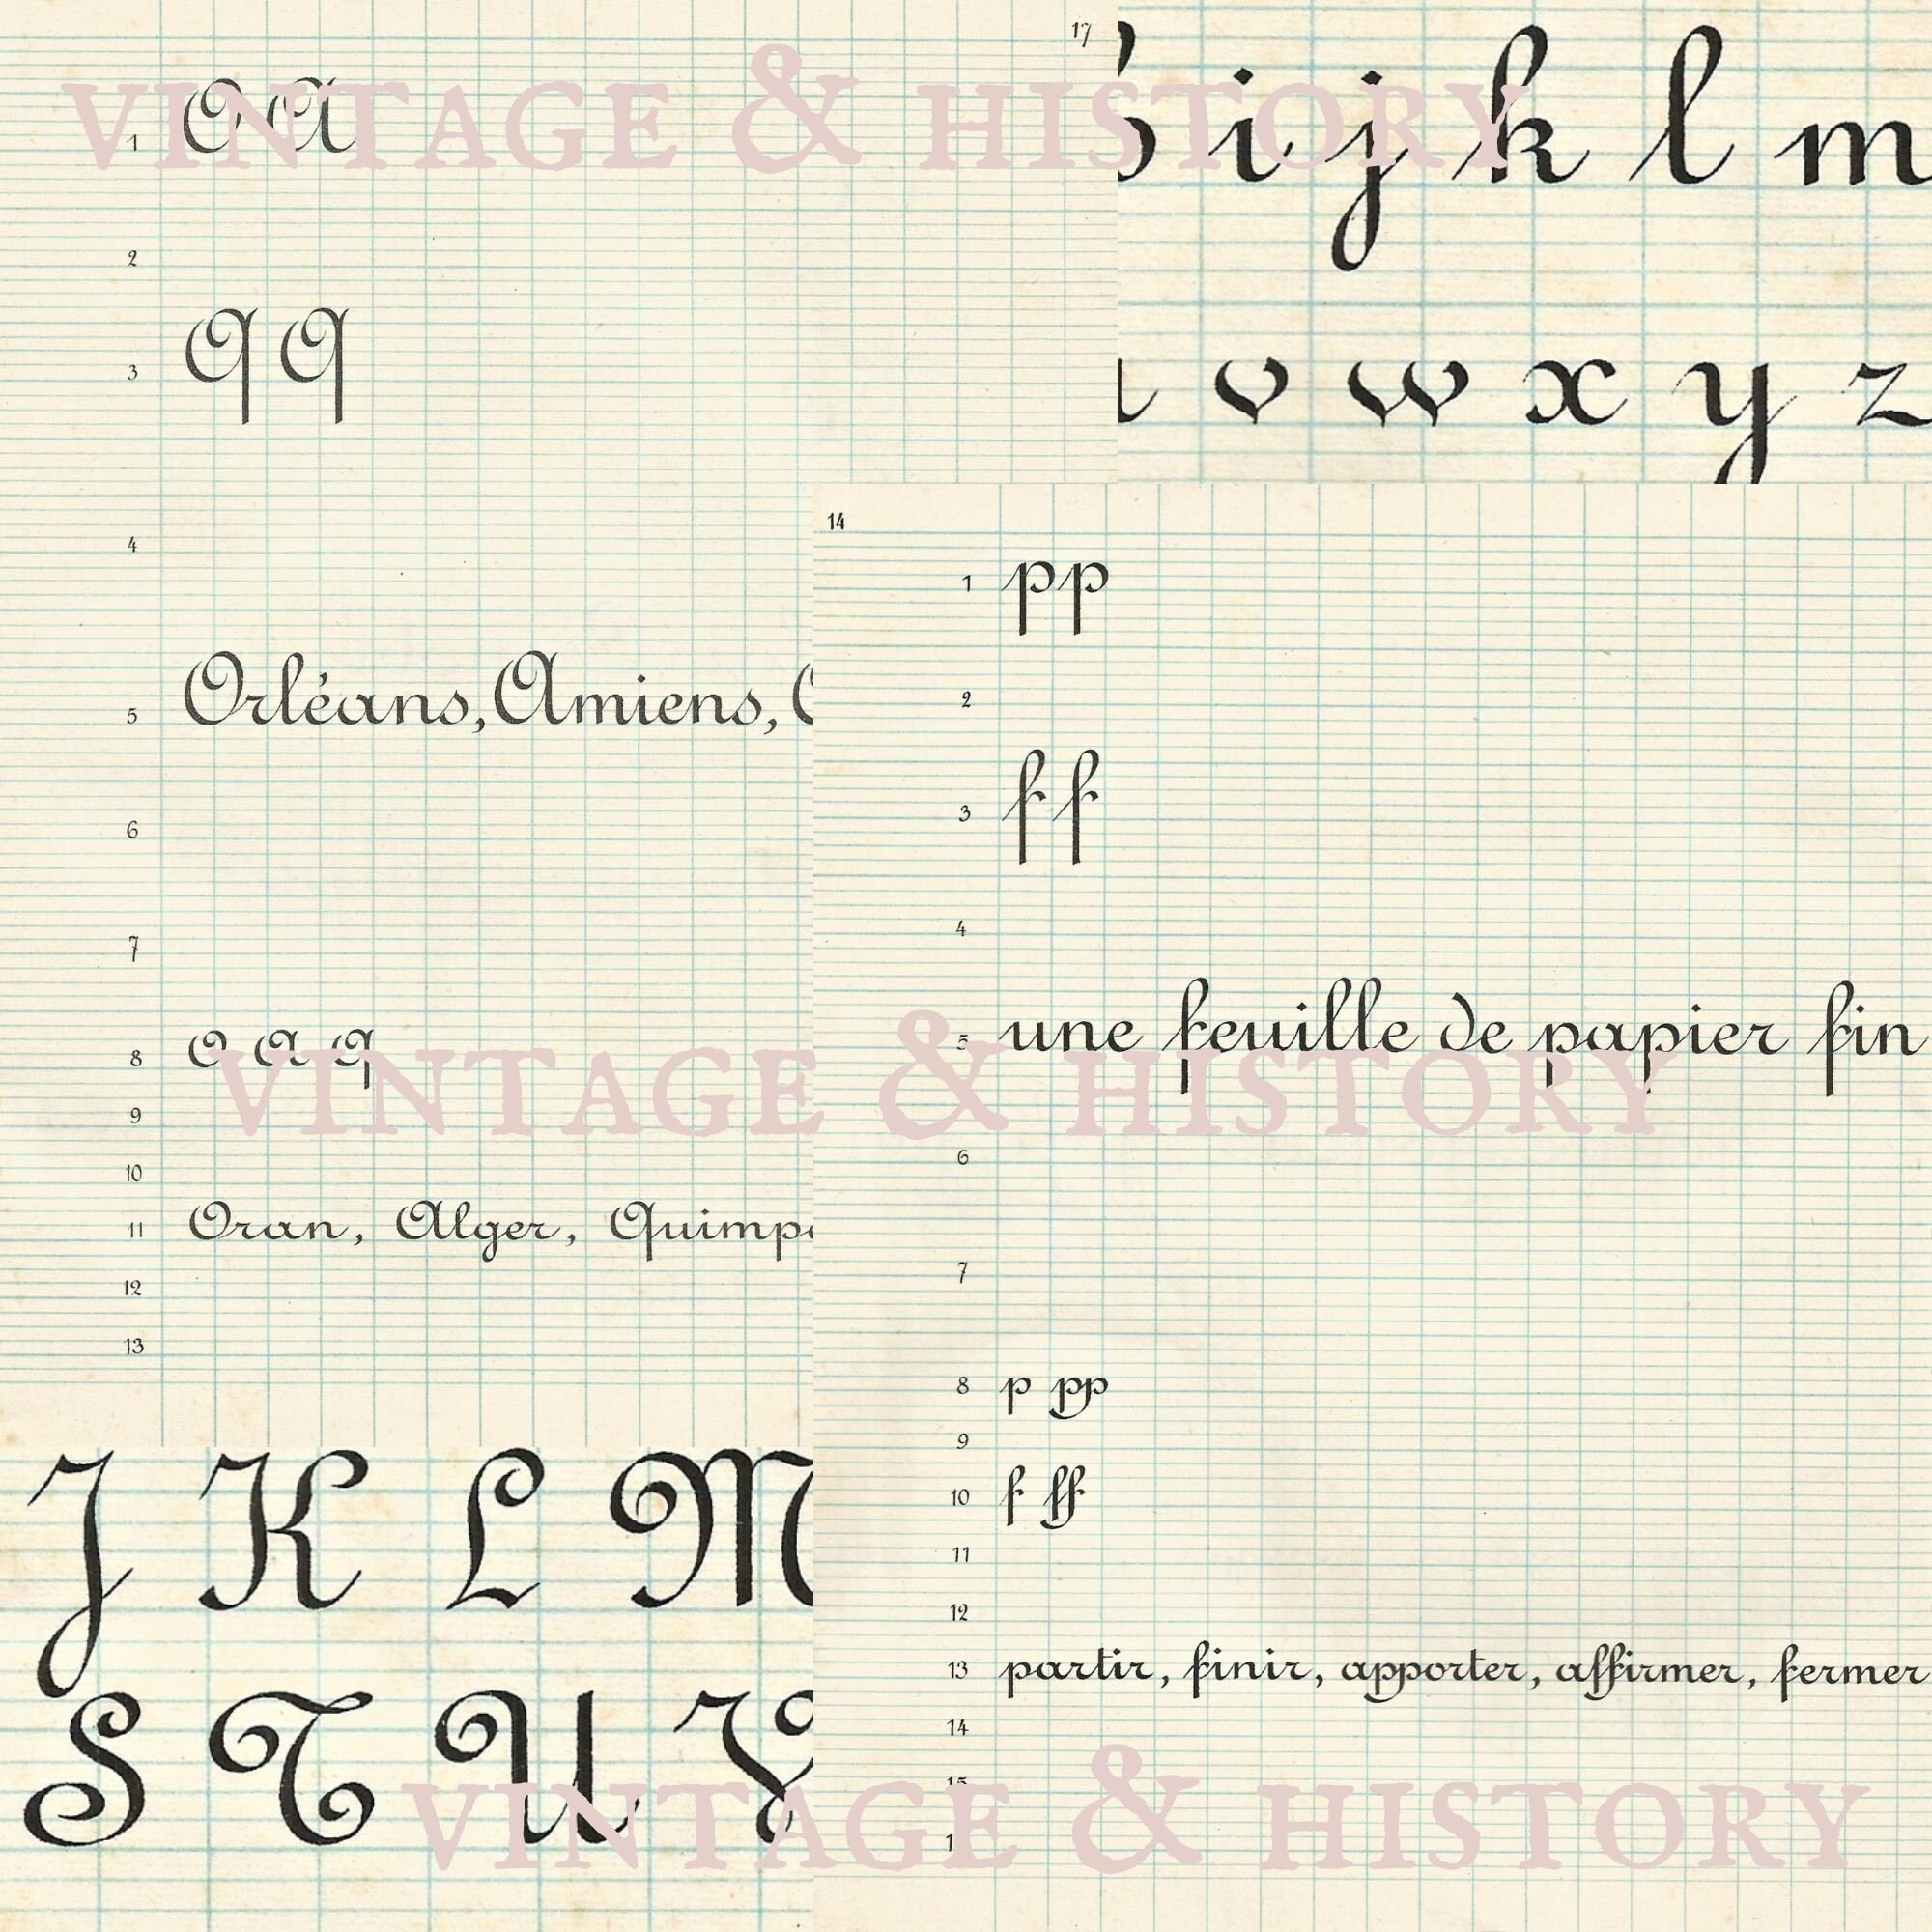 VINTAGE & HISTORY
17
1 O A
2
3 Q Q
4
5 Orléans, Amiens,
6
7
8 O A Q
9
10
11 Oran, Alger,
12
13
i j k l m
v w x y z
14
1 pp
2
3 f f
4
5 une feuille de papier fin
6
7
8 p pp
9
10 f ff
11
12
13 partir, finir, apporter, affirmer, fermer
14
15
VINTAGE & HISTORY
J K L M
S T U V
VINTAGE & HISTORY